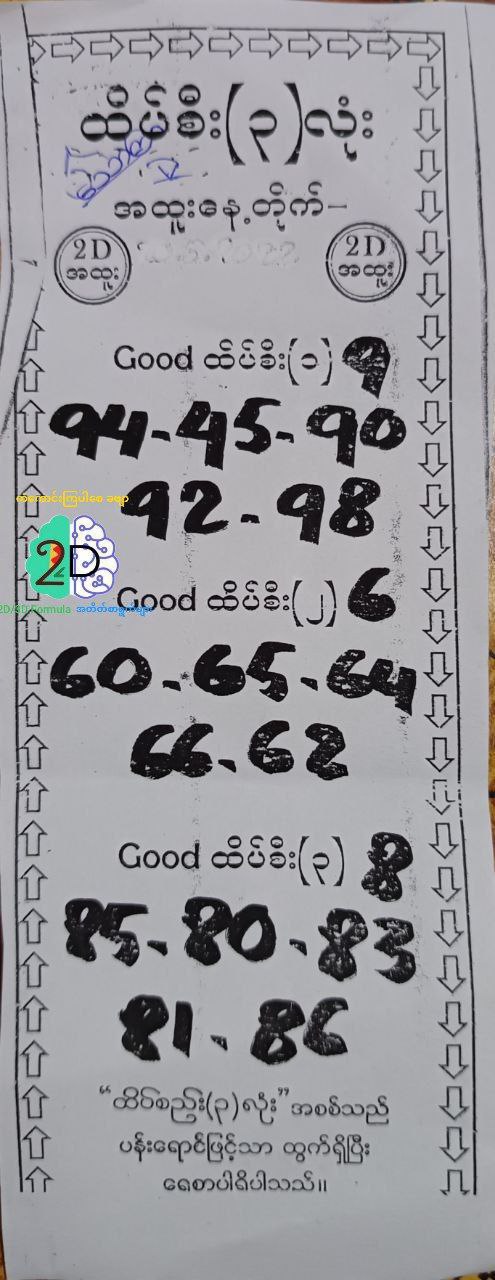 ထိပ်စီး(၃)လုံး
အထူးနေ့တိုက်-
2D အထူး
2D အထူး
Good ထိပ်စီး(၁) 9
94-95-90
92-98
2D
2D/3D Formula အတိတ်စာရွက်များ
Good ထိပ်စီး(၂) 6
60-65-64
66-62
Good ထိပ်စီး(၃) 8
85-80-83
81-86
“ထိပ်စည်း(၃)လုံး”အစစ်သည်
ပန်းရောင်ဖြင့်သာ ထွက်ရှိပြီး
ရေစာပါရှိပါသည်။